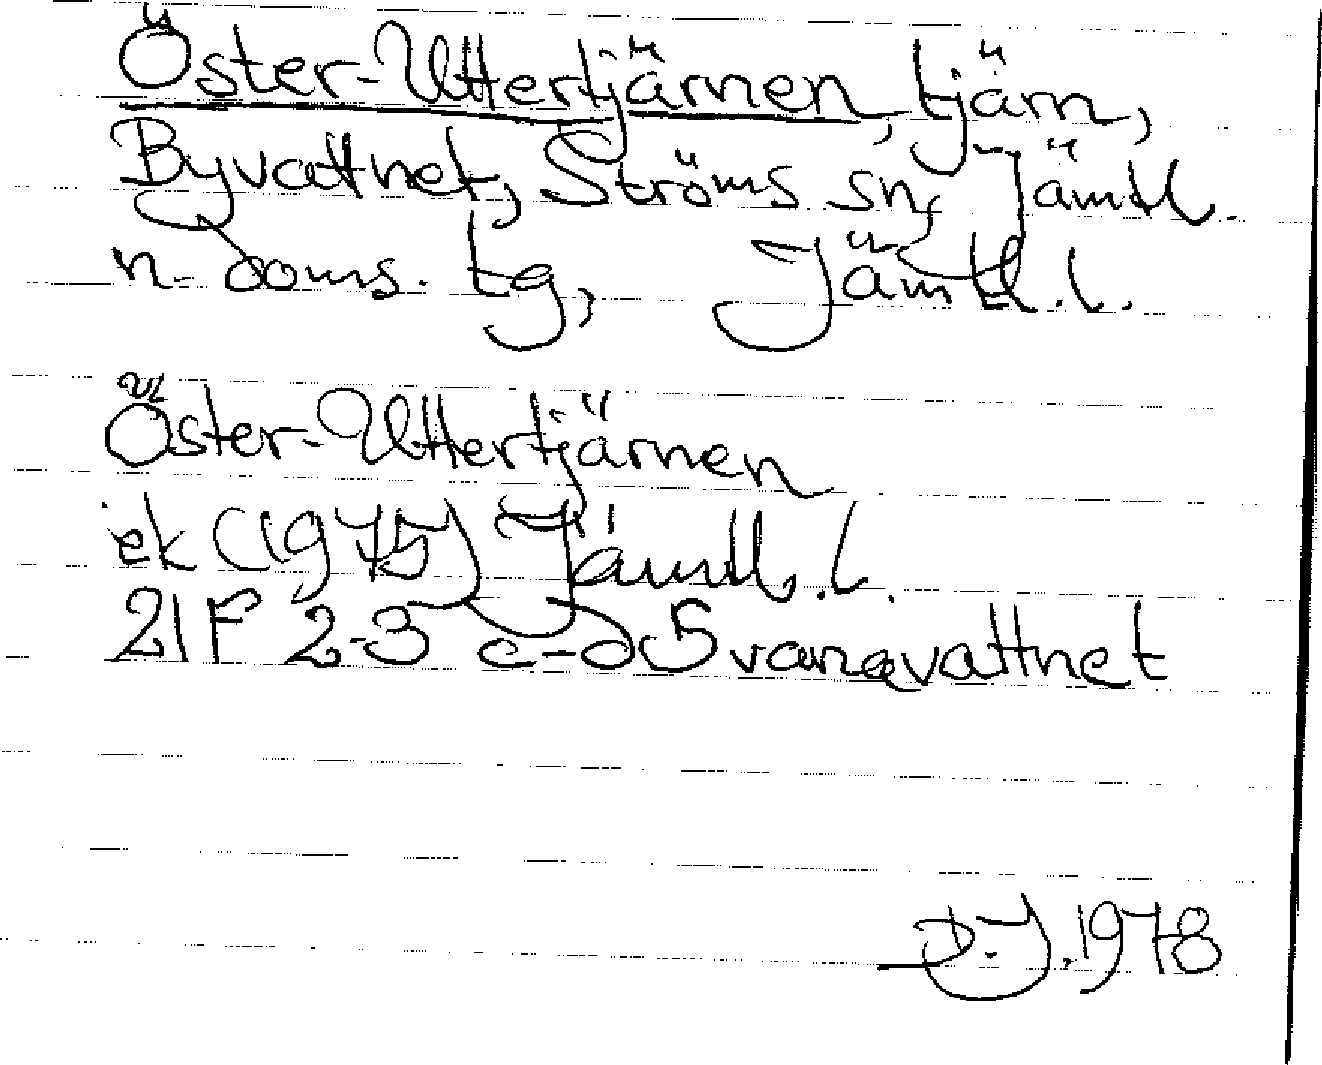 Öster-Uttertjärnen, tjärn,
Byvattnet, Ströms sn, Jämtl.
n. doms. tg, Jämtl.l.
Öster-Uttertjärnen
ek (1975) Jämtl.l.
21F 2-3 c-d Svanavattnet
D.J. 1978